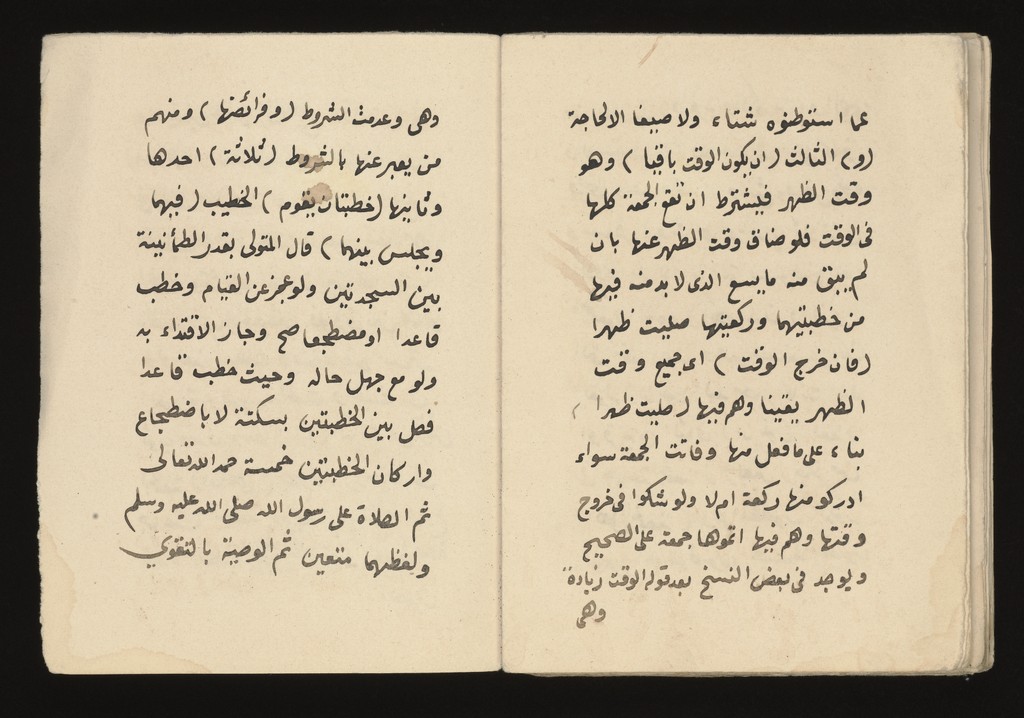 عما استوطنوه شتاء ولا صيفا الا لحاجة
(و) الثالث (ان يكون الوقت باقيا) وهو
وقت الظهر فيشترط ان تقع الجمعة كلها
فى الوقت فلو ضاق وقت الظهر عنها بان
لم يبق منه ما يسع الذى لا بد منه فيها
من خطبتيهما وركعتيها صليت ظهرا
(فان خرج الوقت) اى جميع وقت
الظهر يقينا وهم فيها (صليت ظهرا)
بناء على ما فعل منها وفاتت الجمعة سواء
ادركو منها ركعة ام لا ولو شكوا فى خروج
وقتها وهم فيها اتموها جمعة على الصحيح
ويوجد فى بعض النسخ بعد قوله الوقت زيادة
وهى
وهى وعدمت الشروط (وفرائضها) ومنهم
من يعبر عنها بالشروط (ثلاثة) احدها
وثانيها (خطبتان يقوم) الخطيب (فيهما
ويجلس بينهما) قال المتولى بقدر الطمأنينة
بين السجدتين ولو عجز عن القيام وخطب
قاعدا او مضطجعا صح وجاز الاقتداء به
ولو مع جهل حاله وحيث خطب قاعدا
فصل بين الخطبتين بسكتة لا باضطجاع
واركان الخطبتين خمسة حمد الله تعالى
ثم الصلاة على رسول الله صلى الله عليه وسلم
ولفظهما متعين ثم الوصية بالتقوى